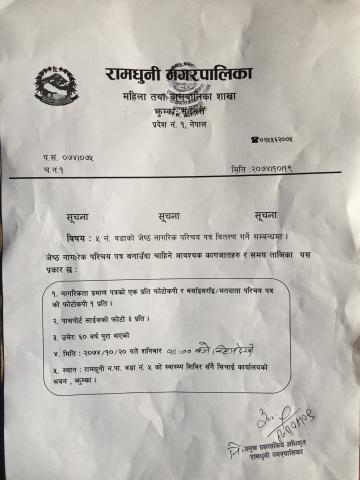 रामधुनी नगरपालिका
महिला तथा बालबालिका शाखा
झुम्का, सुनसरी
प्रदेश नं. १, नेपाल
☎०२५५६२००५
प.सं. ०७४।०७५
च.नं.१
मिति :२०७४।१०।१९
सूचना सूचना सूचना
विषय : ५ नं. वडाको जेष्ठ नागरिक परिचय पत्र वितरण गर्ने सम्बन्धमा ।
जेष्ठ नागरिक परिचय पत्र बनाउँदा चाहिने आवश्यक कागजातहरु र समय तालिका यस
प्रकार छ :
१. नागरिकता प्रमाण पत्रको एक प्रति फोटोकपी र बसाँइसराँई/मतदाता परिचय पत्र
को फोटोकपी १ प्रति ।
२. पासपोर्ट साईजको फोटो ३ प्रति ।
३. उमेर: ६० वर्ष पुरा भएको
४. मिति : २०७४/१०/२० गते शनिबार १०:०० बजे बिहान देखी
५. स्थान : रामधुनी न.पा. वडा नं. ५ को स्वास्थ्य शिविर सँगै सिंचाई कार्यालयको
भवन , झुम्का ।
प्रमुख प्रशासकिय अधिकृत
रामधुनी नगरपालिका